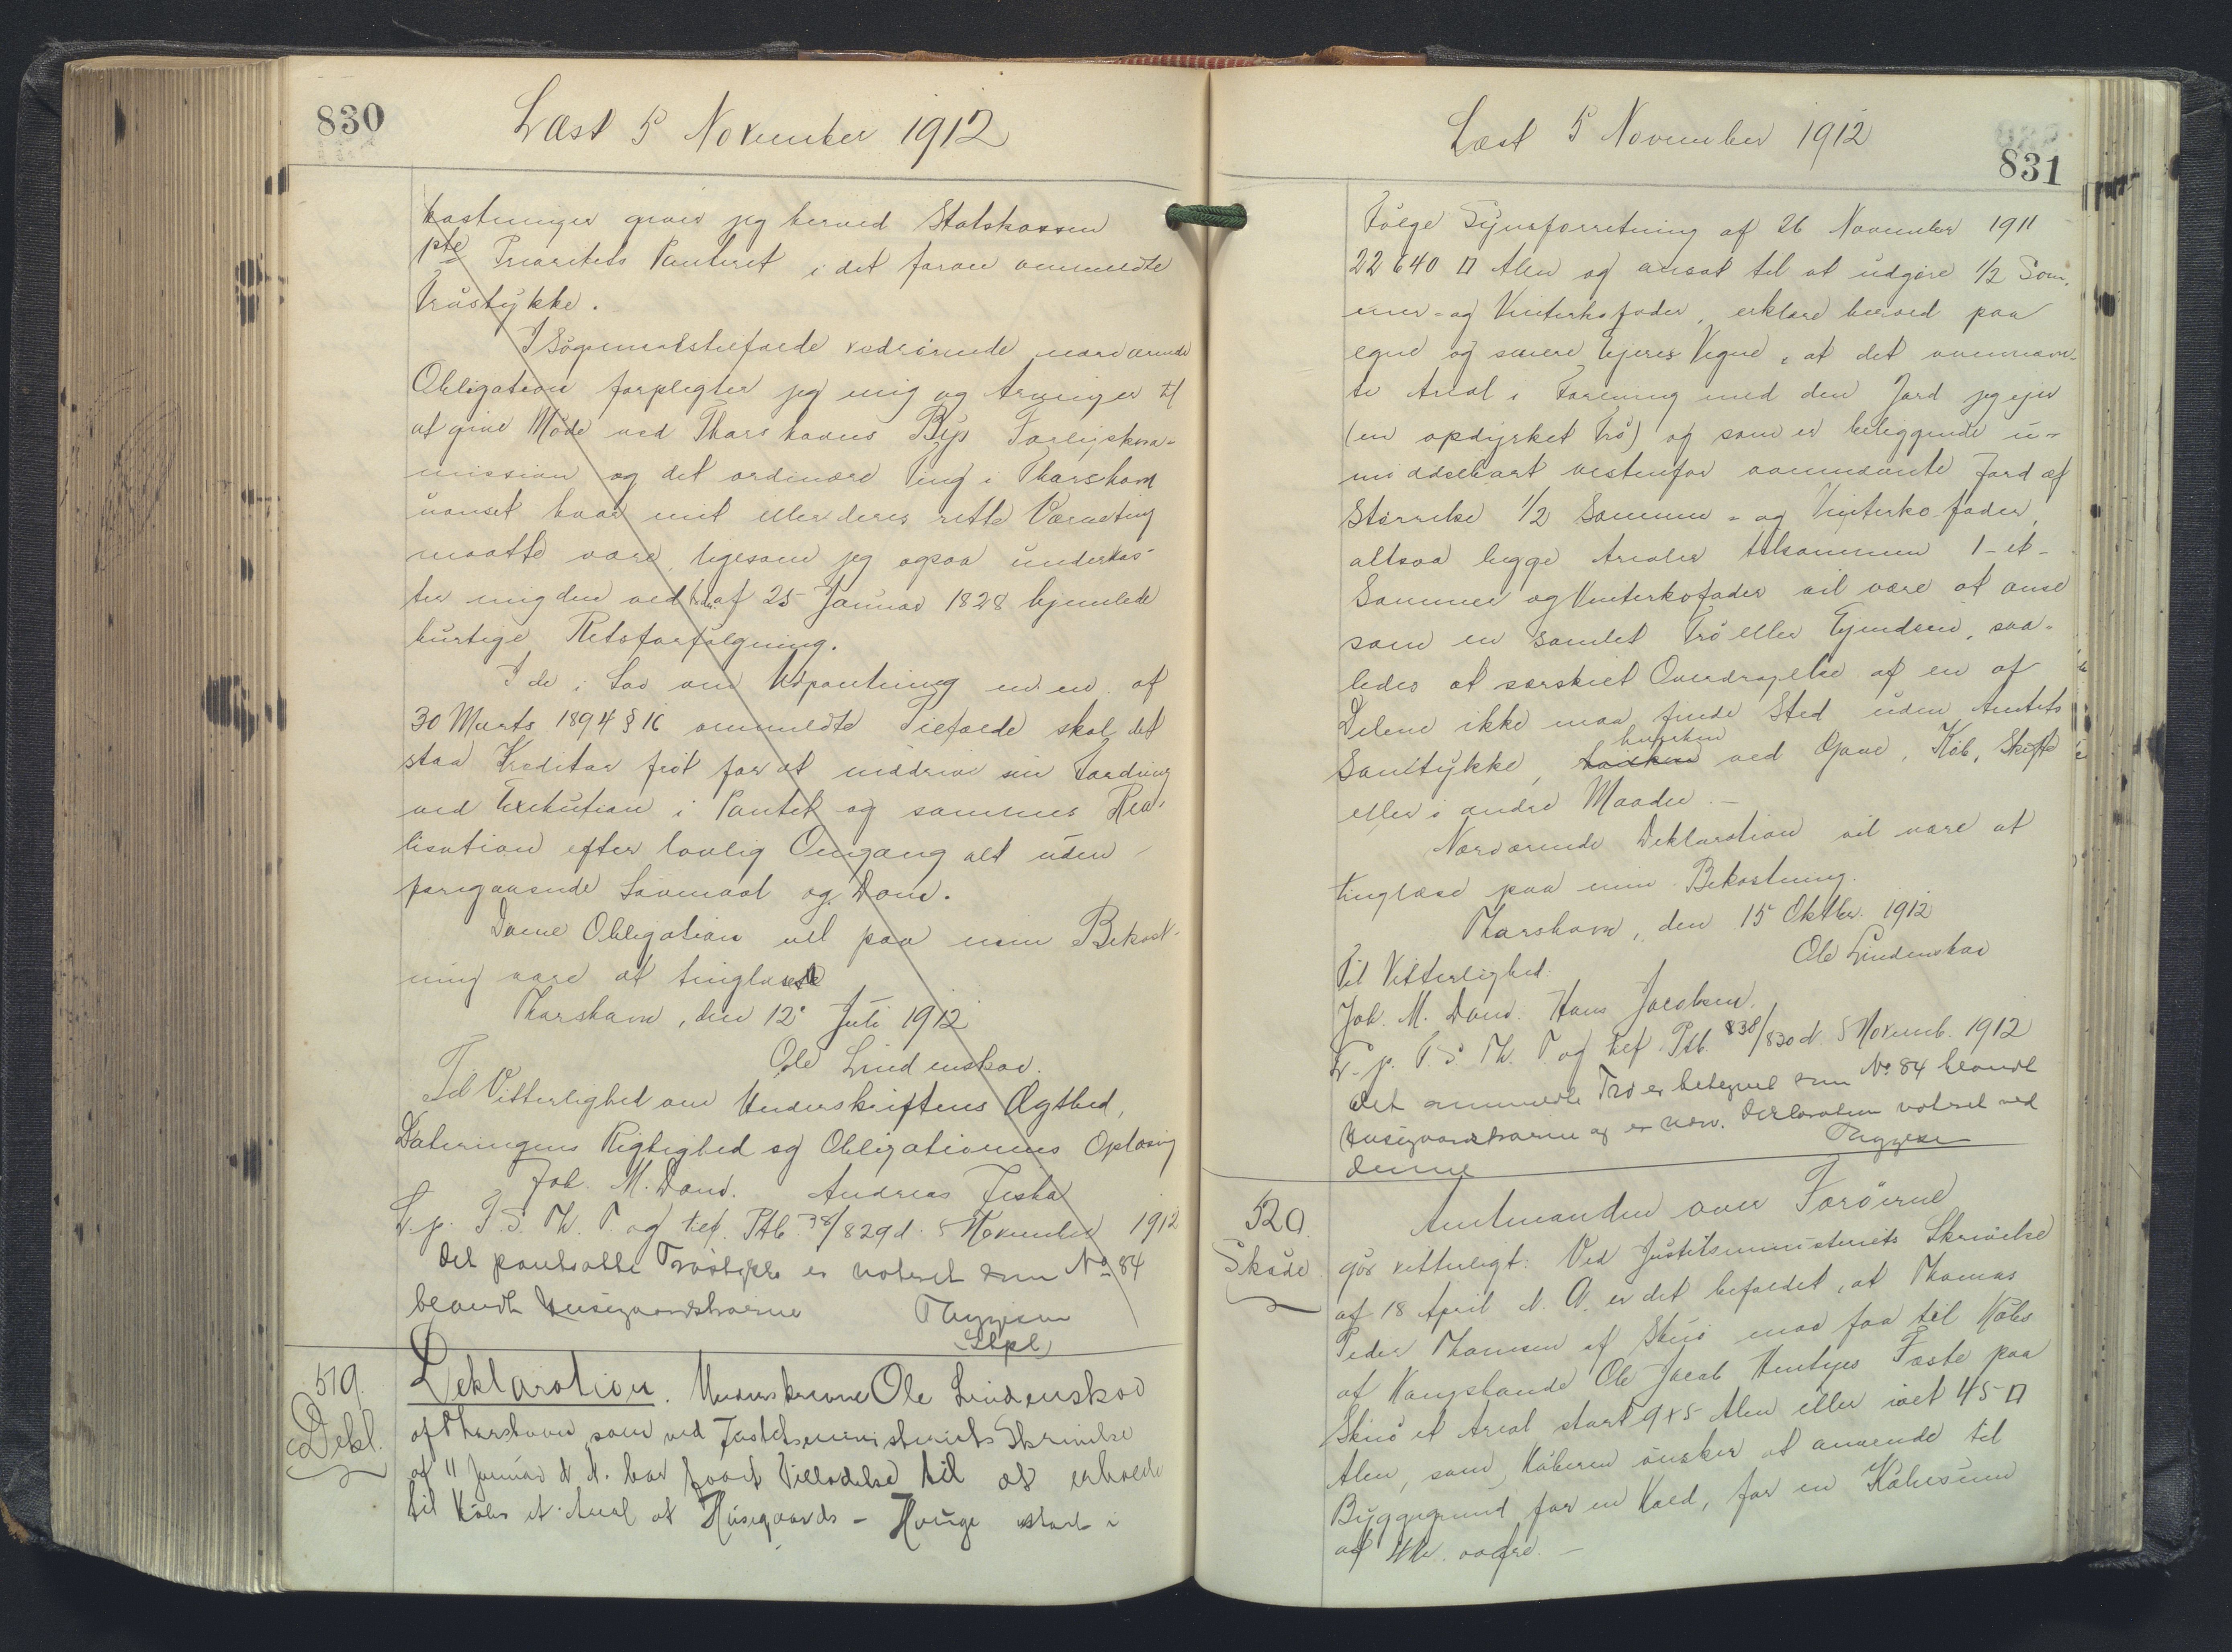 830
Læst 5 November 1912
kostninger giver jeg herved Statskassen
1ste Prioritets Panteret i det foran ommeldte
Tröstykke.
I Sögsmaalstilfælde vedrörende nærværende
Obligation forpligter jeg mig og Arvinger til
at give Möde ved Thorshavns Bys Forligskom-
mission og det ordinære Ting i Thorshavn
uanset hvor mit eller deres rette Værneting
maatte være, ligesom jeg ogsaa underkas-
ter mig den ved Frdn. af 25 Januar 1828 hjemlede
hurtige Retsforfölgning.
I de i Lov om Udpantning m. m. af
30 Marts 1894 § 16 ommeldte Tilfælde skal det
staa Kreditor frit for at inddrive sin Fordring
ved Exekution i Pantet og sammes Rea-
lisation efter lovlig Omgang alt uden
foregaaende Lovmaal og Dom.
Denne Obligation vil paa min Bekost-
ning være at tinglæse
Thorshavn, den 12' Juli 1912
Ole Lindenskov.
Til Vitterlighed om Underskriftens Ægthed,
Dateringens Rigtighed og Obligationens Oplæsning
Joh. M. Dam. Andreas Ziska
L. p. T. S. Th. T. og tilf. Ptb. 38/829 d. 5 November 1912
Det pantsatte Tröstykke er noteret som No 84
blandt Husegaardstraerne Thygesen
Skpl
519.
Dekl.
Deklaration. Underskrevne Ole Lindenskov
af Thorshavn som ved Justitsministeriets Skrivelse
af 11 Januar d. A. har faaet Tilladelse til at erholde
til Köbs et Areal af Husegaards-Hauge stort i
831
Læst 5 November 1912
Fölge Synsforretning af 26 November 1911
22640 □ Alen og ansat til at udgöre 1/2 Som-
mer- og Vinterkofoder, erklærer herved paa
egne og senere Ejeres Vegne, at det ovennævn-
te Areal i Forening med den Jord jeg ejer
(en opdyrket Trö) og som er beliggende u-
middelbart vestenfor ovennævnte Jord af
Störrelse 1/2 Sommer- og Vinterkofoder,
altsaa begge Arealer tilsammen 1-et-
Sommer og Vinterkofoder vil være at anse
som en samlet Trö eller Ejendom, saa-
ledes at særskilt Overdragelse af en af
Delene ikke maa finde Sted uden Amtets
Samtykke, hverken ved Gave, Köb, Skifte
eller i andre Maader.-
Nærværende Deklaration vil være at
tinglæse paa min Bekostning.
Thorshavn, den 15 Oktbr. 1912
Ole Lindenskov
Til Vitterlighed:
Joh. M. Dam. Hans Jacobsen.
L. p. T. S. Th. T. og tilf. Ptb. 38/830 d. 5 Novemb. 1912
Det ommeldte Trö er betegnet som No 84 blandt
Husegaardstraerne og er nærv. Deklaration noteret ved
denne Thygesen
520.
Sköde
Amtmanden over Færöerne
gör vitterligt: Ved Justitsministeriets Skrivelse
af 18 April d. A. er det befalet, at Thomas
Peder Thomsen af Skuö maa faa til Köbs
af Kongsbonde Ole Jacob Hentzes Fæste paa
Skuö et Areal stort 9x5 Alen eller ialt 45 □
Alen, som Köberen önsker at anvende til
Byggegrund for en Kold, for en Köbesum
af 4 Kr. 00 Øre.-